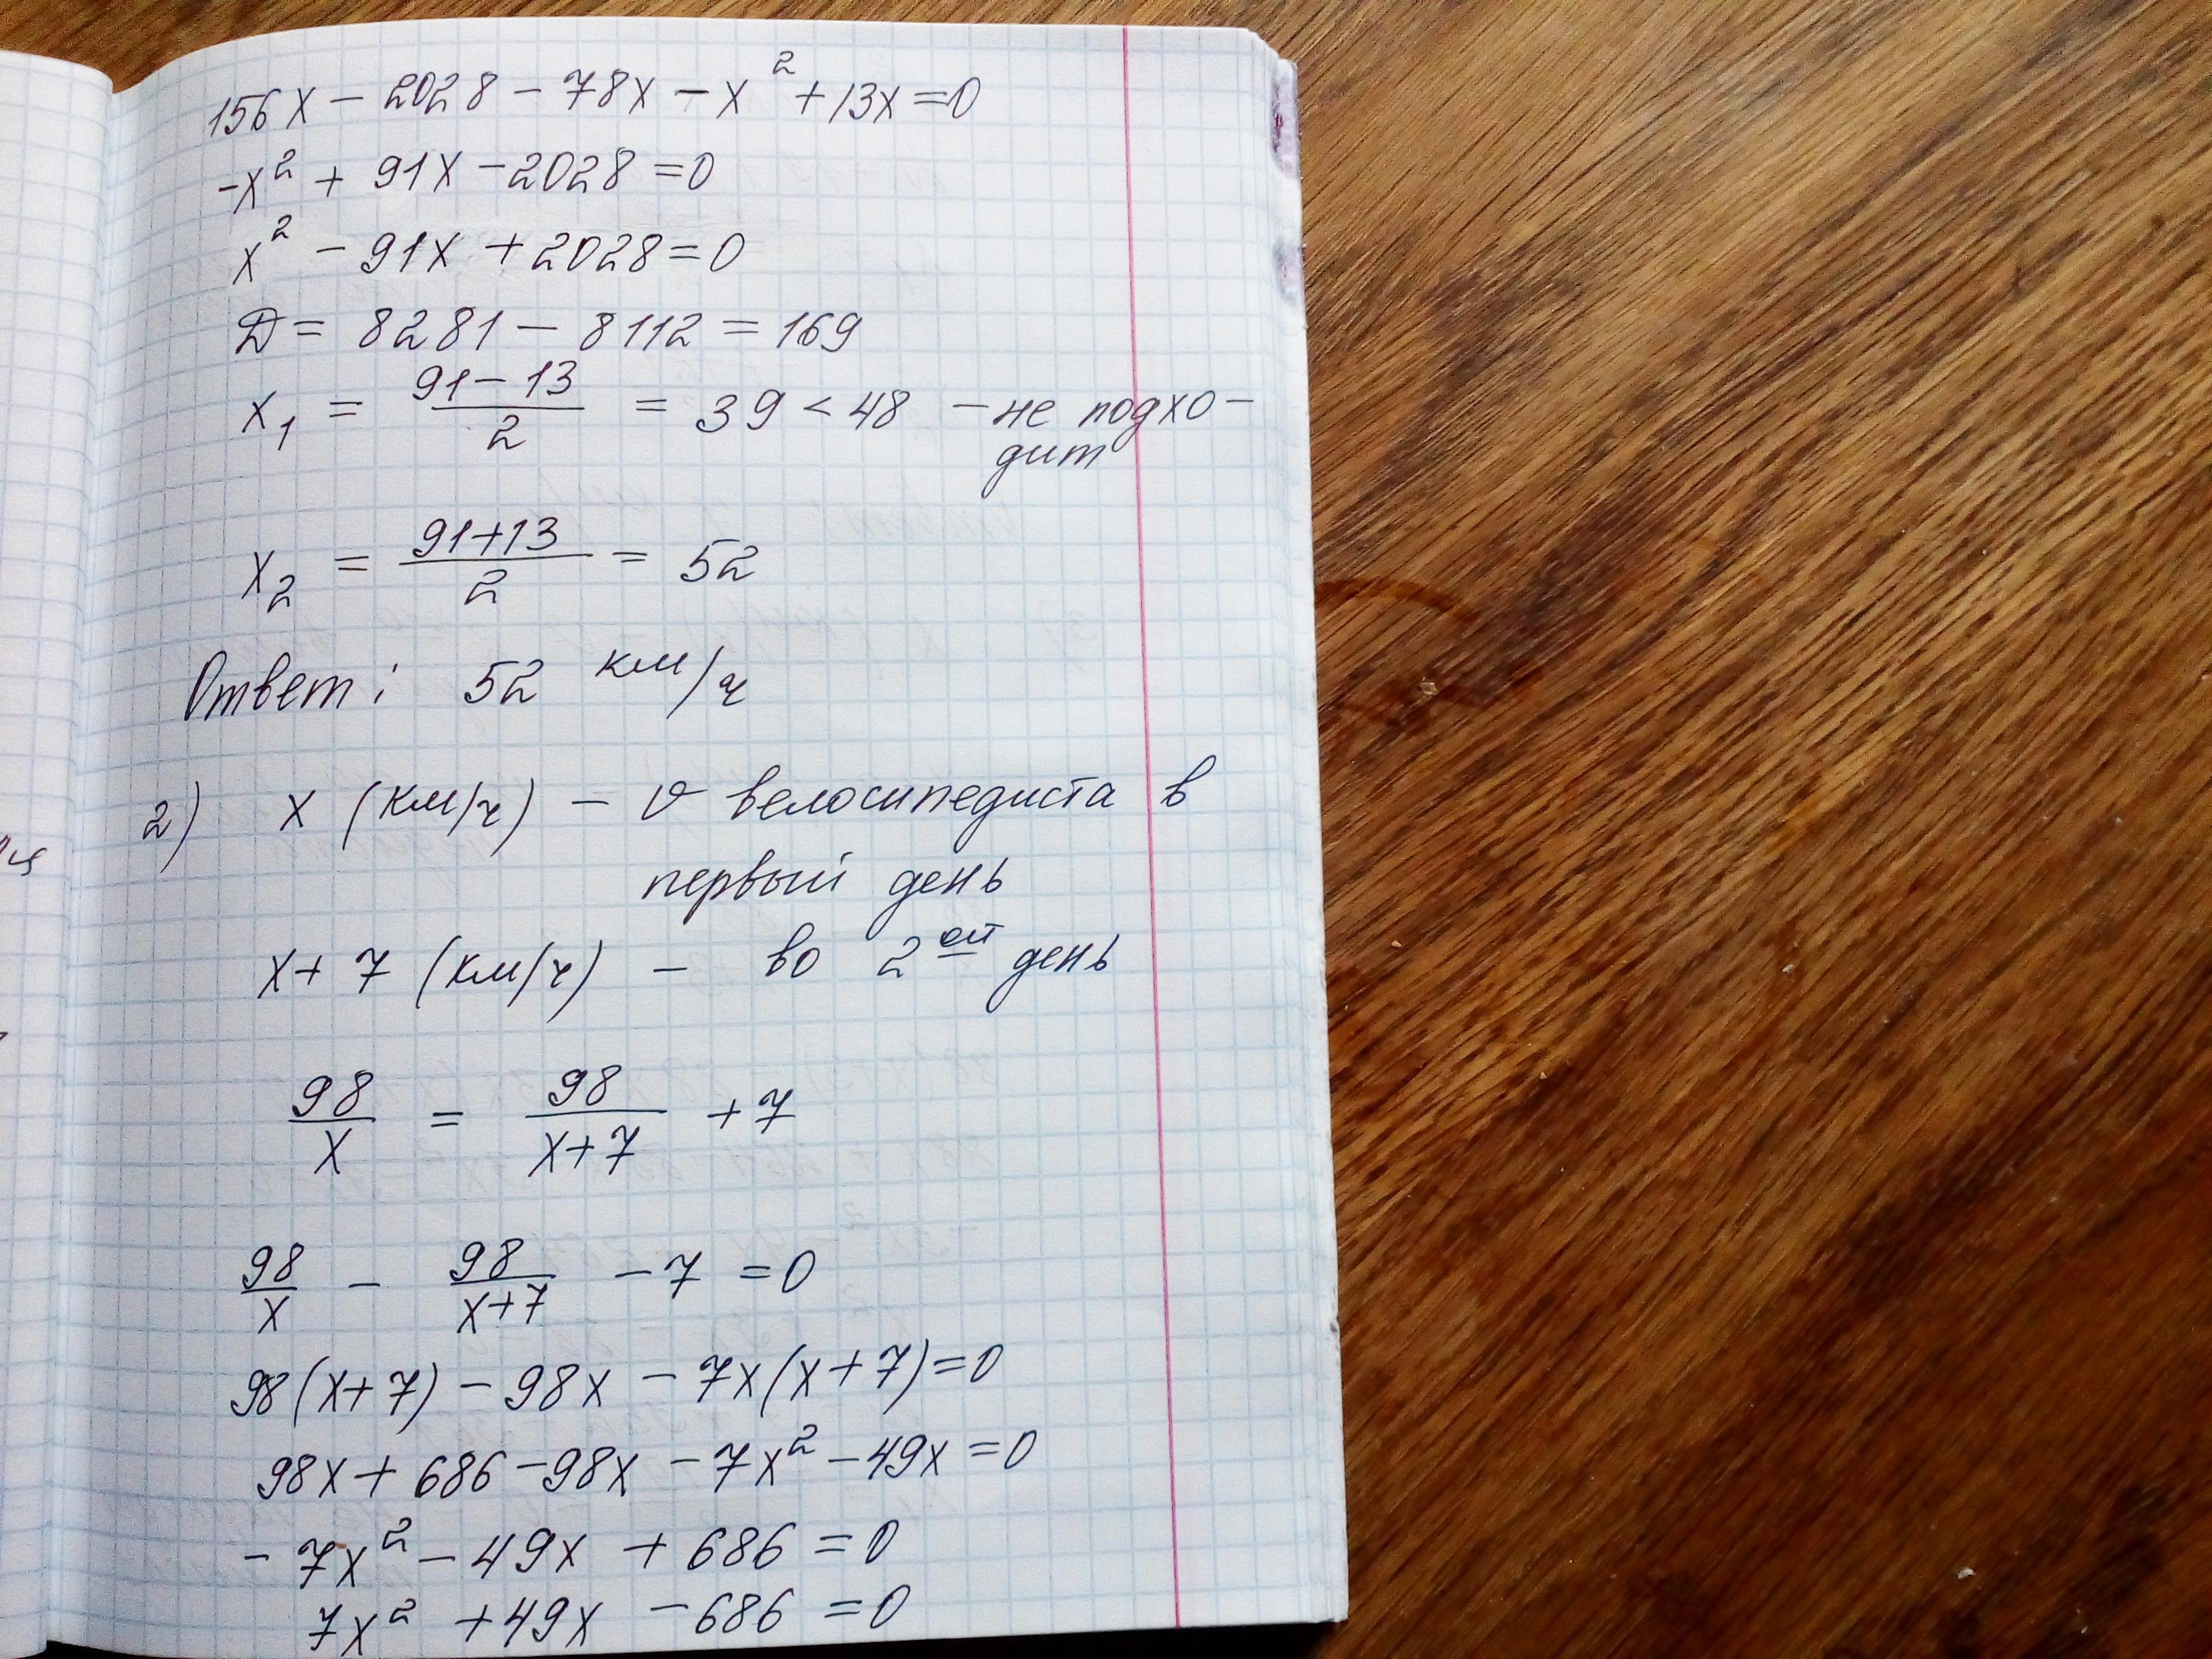 156x - 2028 - 78x - x² + 13x = 0
-x² + 91x - 2028 = 0
x² - 91x + 2028 = 0
D = 8281 - 8112 = 169
x₁ = (91-13)/2 = 39 < 48 - не подхо-
дит
x₂ = (91+13)/2 = 52
Ответ: 52 км/ч
2) x (км/ч) - v велосипедиста в
первый день
x+7 (км/ч) - во 2ой день
98/x = 98/(x+7) + 7
98/x - 98/(x+7) - 7 = 0
98(x+7) - 98x - 7x(x+7) = 0
98x + 686 - 98x - 7x² - 49x = 0
- 7x² - 49x + 686 = 0
7x² + 49x - 686 = 0